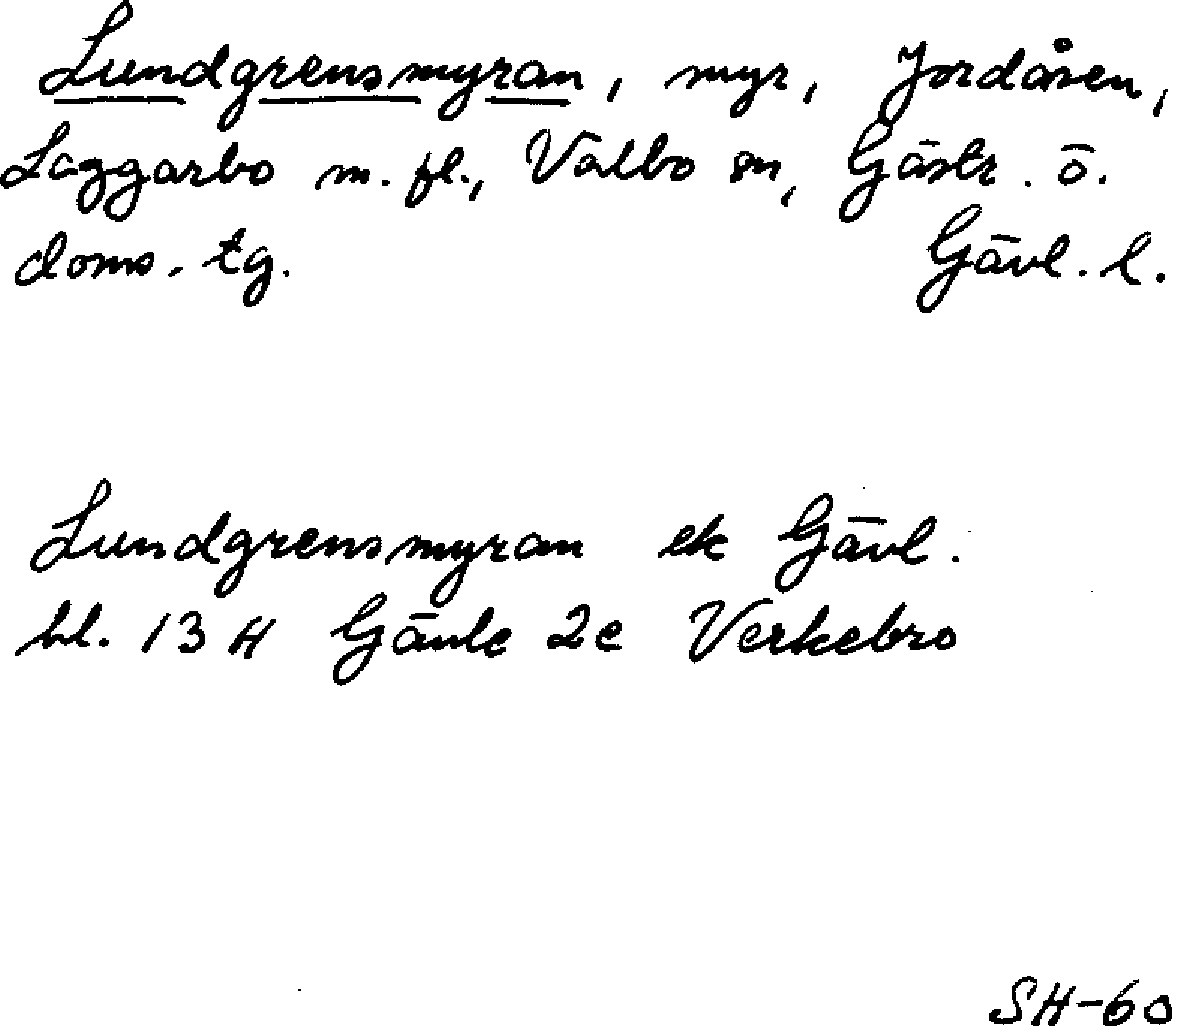 Lundgrensmyran, myr, Jordåsen,
Laggarbo m. fl., Valbo sn, Gästr. ö.
doms. tg. Gävl. l.
Lundgrensmyran ek Gävl.
bl. 13 H Gävle 2c Verkebro
SH-60